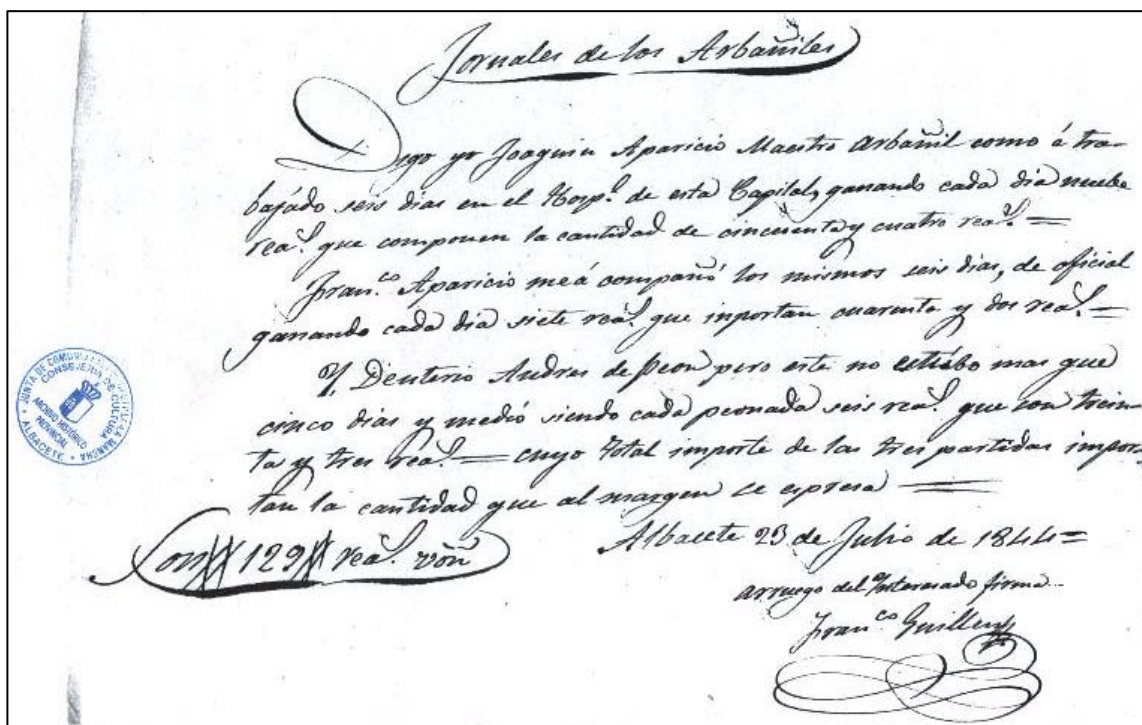 Jornales de los Arbañiles
Digo yo Joaquin Aparicio Maestro Arbañil como á tra-
bajádo seis dias en el Hosp.l de esta Capital, ganando cada dia nuebe
rea.s que componen la cantidad de cincuenta y cuatro rea.s =
Fran.co Aparicio me á compañó los mismos seis dias, de oficial
ganando cada dia siete rea.s que inportan cuarenta y dos rea.s =
Y. Deuterio Andres de peon pero este no estubo mas que
cinco dias y medio siendo cada peonada seis rea.s que son trein-
ta y tres rea.s = cuyo total importe de las tres partidas impor-
tan la cantidad que al margen se espresa =
Albacete 23 de Julio de 1844 =
Son 129 rea.s von
arruego del Interesado firma
Fran.co Guillen
JUNTA DE COMUNIDADES DE CASTILLA-LA MANCHA
CONSEJERIA DE CULTURA
ARCHIVO HISTÓRICO
PROVINCIAL
ALBACETE